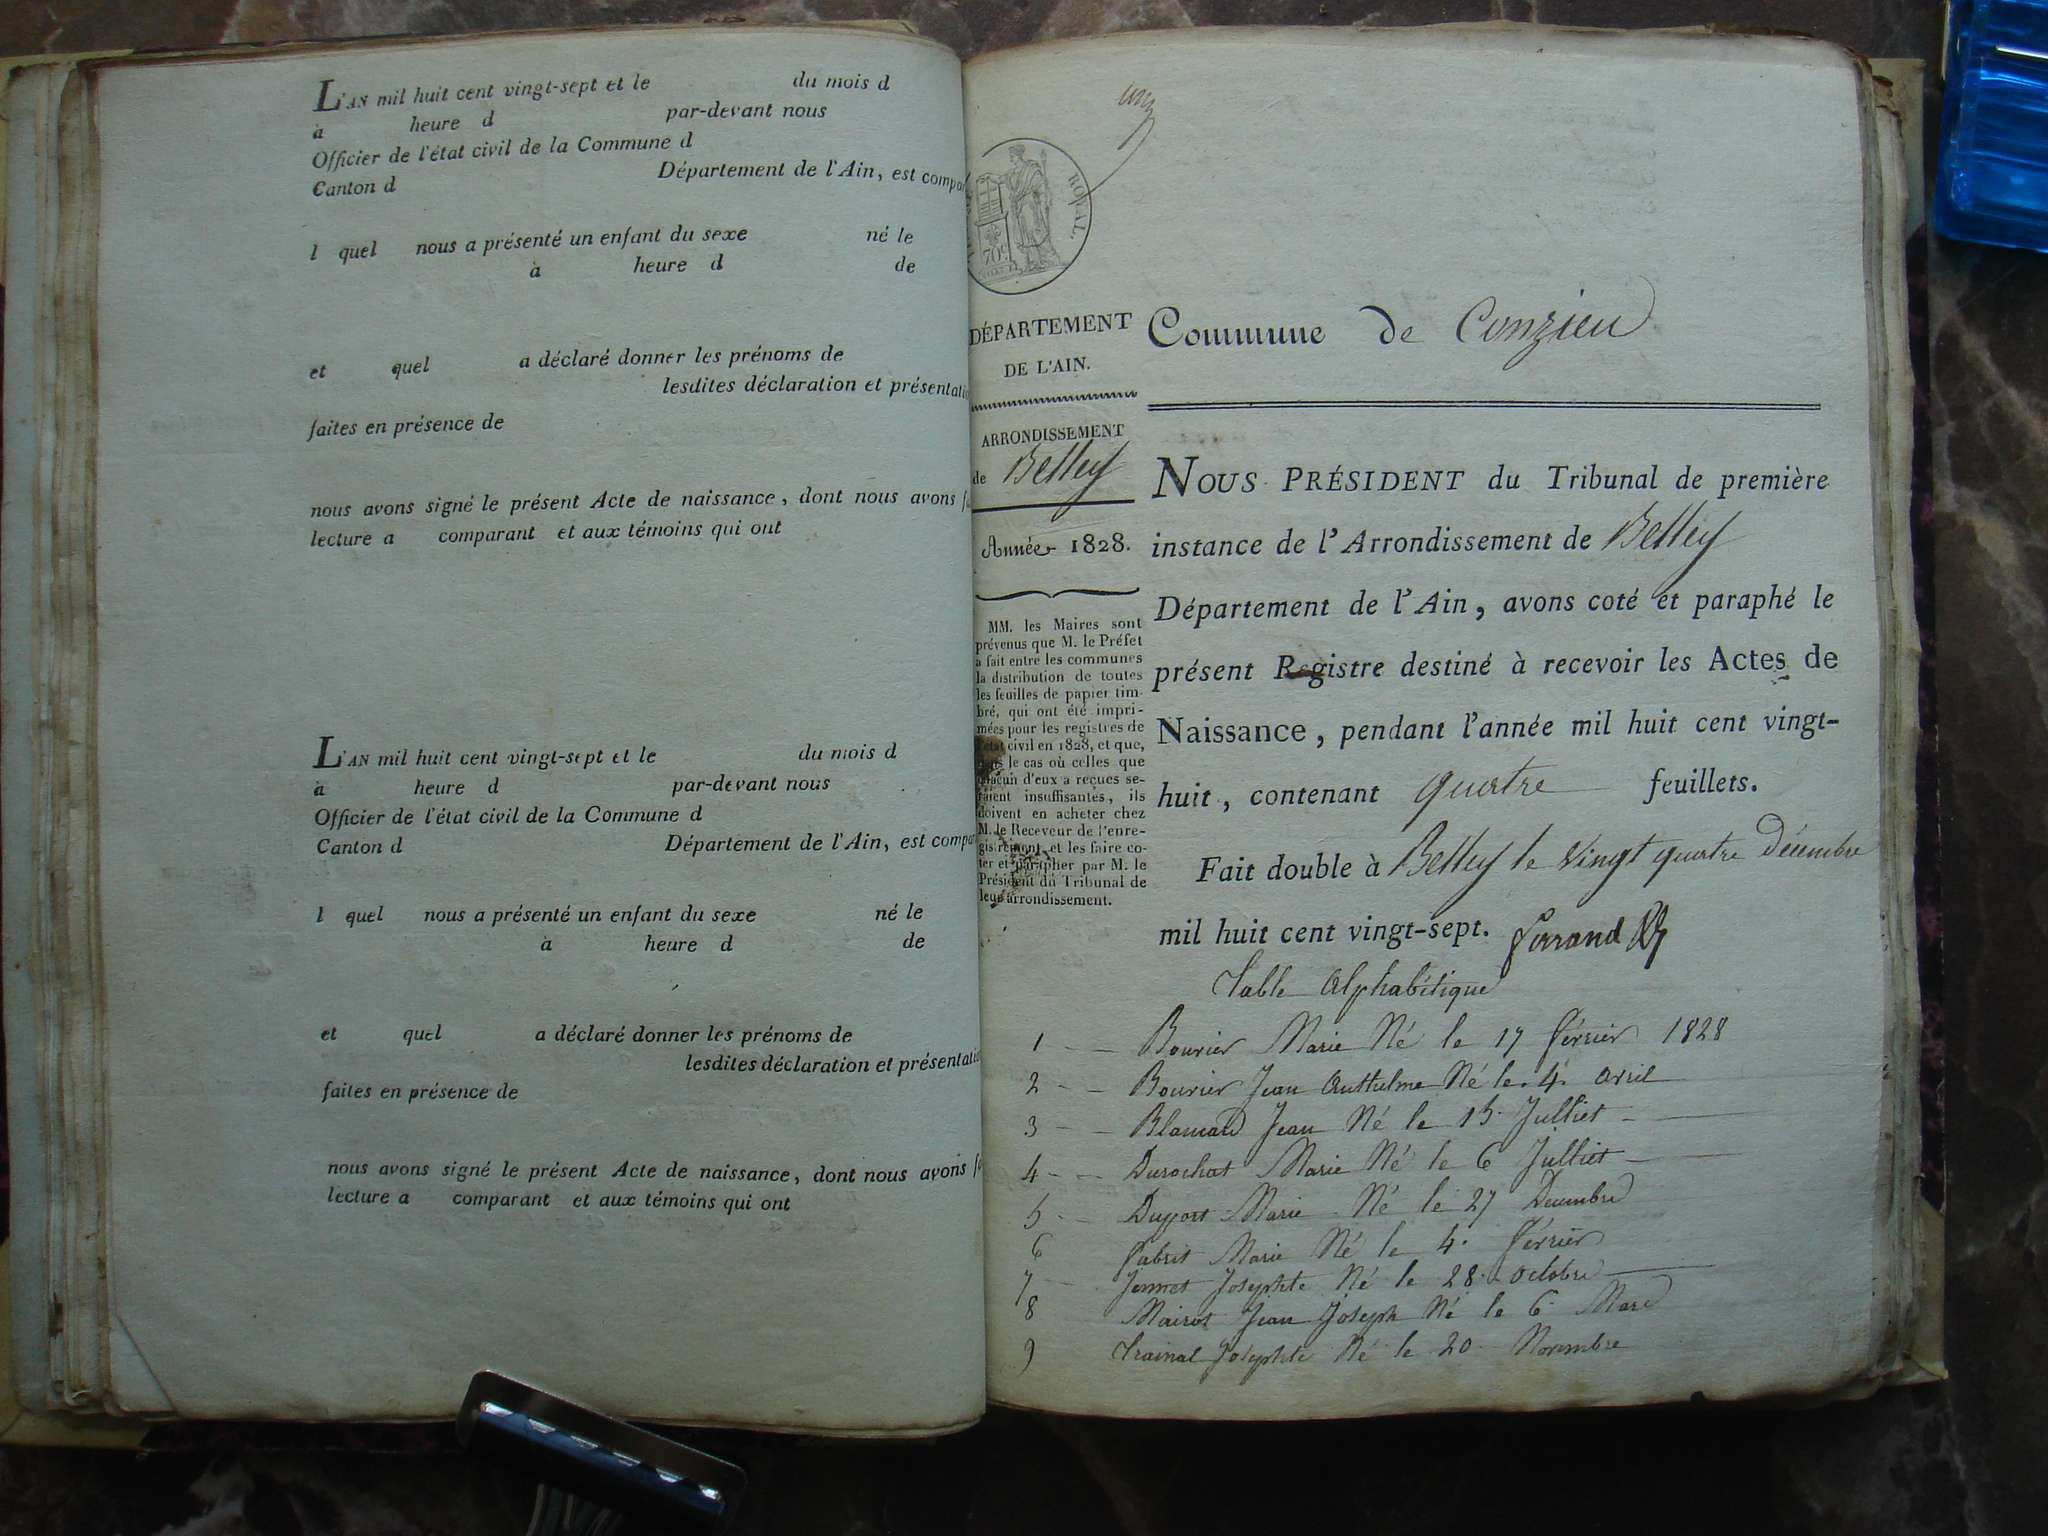 L'AN mil huit cent vingt-sept et le du mois d
à heure d par-devant nous
Officier de l'état civil de la Commune d
Canton d Département de l'Ain, est compar
l quel nous a présenté un enfant du sexe né le
à heure d de
et quel a déclaré donner les prénoms de
lesdites déclaration et présentati
faites en présence de
nous avons signé le présent Acte de naissance, dont nous avons f
lecture a comparant et aux témoins qui ont
L'AN mil huit cent vingt-sept et le du mois d
à heure d par-devant nous
Officier de l'état civil de la Commune d
Canton d Département de l'Ain, est compar
l quel nous a présenté un enfant du sexe né le
à heure d de
et quel a déclaré donner les prénoms de
lesdites déclaration et présentati
faites en présence de
nous avons signé le présent Acte de naissance, dont nous avons f
lecture a comparant et aux témoins qui ont
ROYAL.
70c
DÉPARTEMENT
DE L'AIN.
ARRONDISSEMENT
de Belley
Année 1828.
MM. les Maires sont
prévenus que M. le Préfet
a fait entre les communes
la distribution de toutes
les feuilles de papier tim-
bré, qui ont été impri-
mées pour les registres de
l'état civil en 1828, et que,
dans le cas où celles que
chacun d'eux a reçues se-
raient insuffisantes, ils
doivent en acheter chez
M. le Receveur de l'enre-
gistrement, et les faire co-
ter et parapher par M. le
Président du Tribunal de
leur arrondissement.
Commune de Conzieu
NOUS PRÉSIDENT du Tribunal de première
instance de l'Arrondissement de Belley
Département de l'Ain, avons coté et paraphé le
présent Registre destiné à recevoir les Actes de
Naissance, pendant l'année mil huit cent vingt-
huit, contenant quatre feuillets.
Fait double à Belley le vingt quatre Décembre
mil huit cent vingt-sept. Ferrand
Table Alphabétique
1 Bouvier Marie Né le 17 février 1828
2 Bouvier Jean Anthelme Né le 4. avril
3 Jean Né le 15 Julliet
4 Durochat Marie Né le 6 Julliet
5 Duport Marie Né le 27 Décembre
6 Fabrit Marie Né le 4. février
7 Josephte Né le 28 octobre
8 Jean Joseph Né le 6 Mars
9 Josephte Né le 20 Novembre